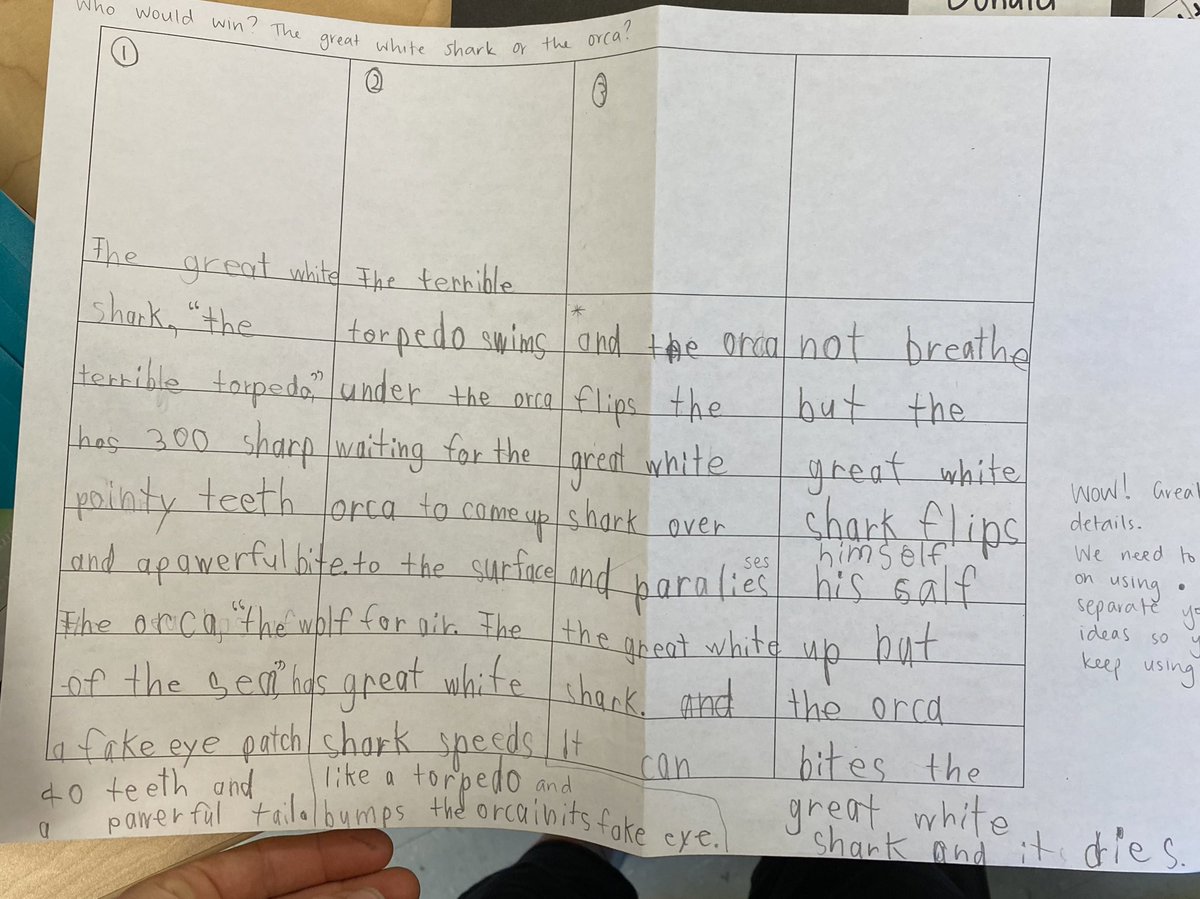 Donald
Who would win? The great white shark or the orca?
①
The great white
shark, "the
terrible torpedo,"
has 300 sharp
pointy teeth
and a pawerful bite.
The orca, "the wolf
of the sea," has
a fake eye patch
40 teeth and
a pawerful tail.
②
The terrible
torpedo swims
under the orca
waiting for the
orca to come up
to the surface
for air. The
great white
shark speeds
like a torpedo and
bumps the orca in its fake eye.
③
* and the orca
flips the
great white
shark over
and paralies ses
the great white
shark. and
It can
not breathe
but the
great white
shark flips
himself
his salf
up but
the orca
bites the
great white
shark and it dries.
Wow! Great
details.
We need to
on using .
separate
ideas so
keep using